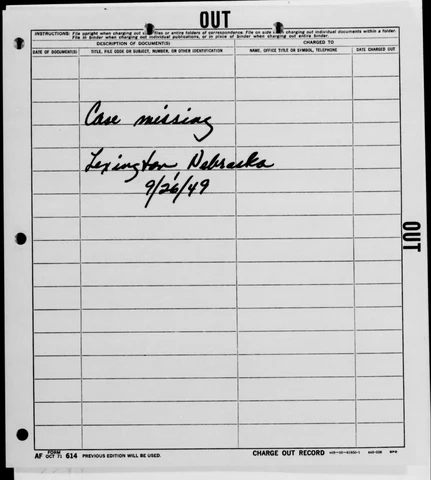 OUT
INSTRUCTIONS: File upright when charging out files or entire folders of correspondence. File on side when charging out individual documents within a folder.
File in binder when charging out individual publications, or in place of binder when charging out entire binder.
DESCRIPTION OF DOCUMENT(S)
CHARGED TO
DATE OF DOCUMENT(S)
TITLE, FILE CODE OR SUBJECT, NUMBER, OR OTHER IDENTIFICATION
NAME, OFFICE TITLE OR SYMBOL, TELEPHONE
DATE CHARGED OUT
Case missing
Lexington, Nebraska
9/26/49
OUT
AF FORM OCT 71 614 PREVIOUS EDITION WILL BE USED.
CHARGE OUT RECORD